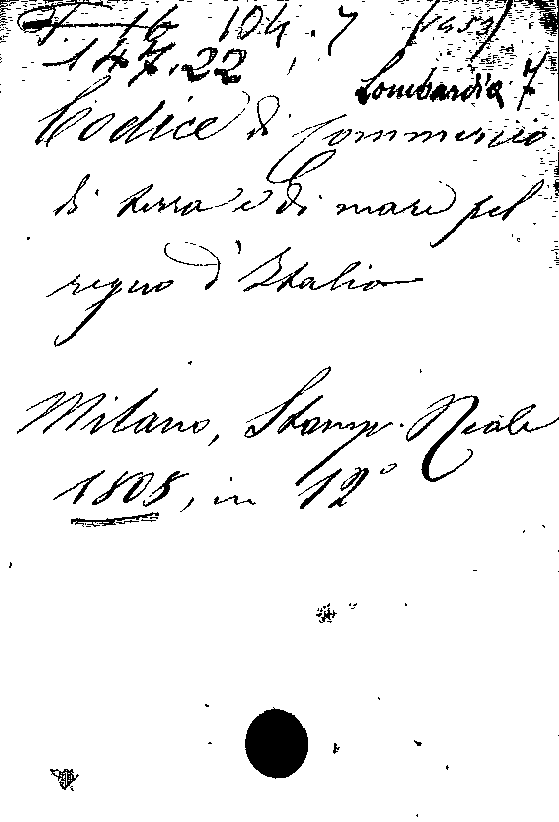 104.7
147.22
Lombardia 7
Codice di Commercio
di terra e di mare pel
regno d'Italia
Milano, Stamp. Reale
1808, in 12°